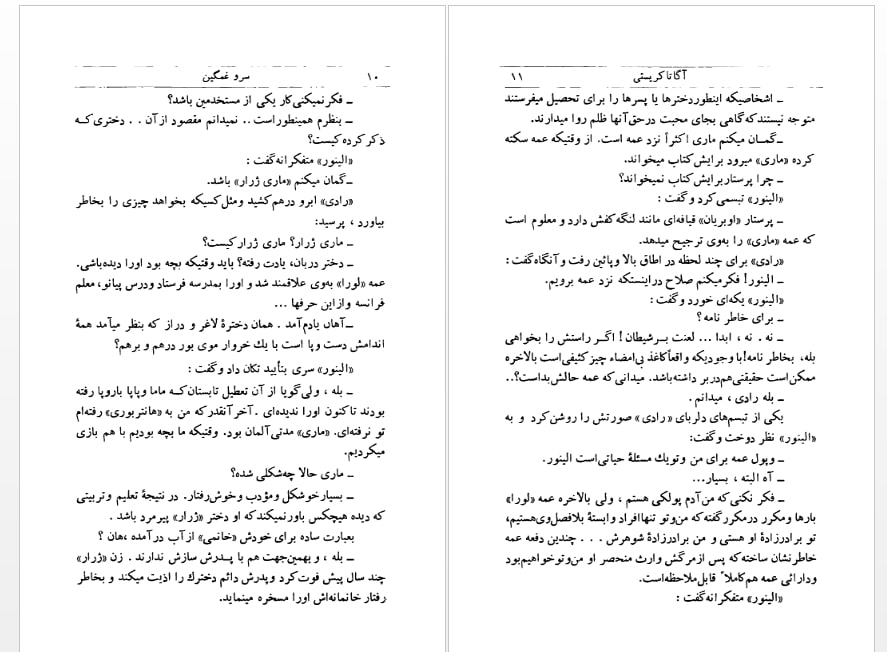 سرو غمگین ۱۰
ــ فکر نمیکنی کار یکی از مستخدمین باشد؟
ــ بنظرم همینطور است . . نمیدانم مقصود از آن . . دختری که
ذکر کرده کیست؟
«الینور» متفکرانه گفت :
ــ گمان میکنم «ماری ژرار» باشد.
«رادی» ابرو درهم کشید ومثل کسیکه بخواهد چیزی را بخاطر
بیاورد ، پرسید:
ــ ماری ژرار؟ ماری ژرار کیست؟
ــ دختر دربان، یادت رفته؟ باید وقتیکه بچه بود اورا دیده‌باشی.
عمه «لورا» به‌وی علاقمند شد و اورا بمدرسه فرستاد ودرس پیانو، معلم
فرانسه و از این حرفها ...
ــ آهان یادم‌آمد . همان دخترهٔ لاغر و دراز که بنظر میآمد همهٔ
اندامش دست وپا است با یك خروار موی بور درهم و برهم؟
«الینور» سری بتأیید تکان داد وگفت :
ــ بله ، ولی گویا از آن تعطیل تابستان که ماما وپاپا باروپا رفته
بودند تاکنون اورا ندیده‌ای . آخر آنقدر که من به «هانتربوری» رفته‌ام
تو نرفته‌ای. «ماری» مدتی آلمان بود. وقتیکه ما بچه بودیم با هم بازی
میکردیم.
ــ ماری حالا چه‌شکلی شده؟
ــ بسیار خوشگل ومؤدب وخوش‌رفتار. در نتیجهٔ تعلیم و تربیتی
که دیده هیچکس باور نمیکند که او دختر «ژرار» پیرمرد باشد .
بعبارت ساده برای خودش «خانمی» از آب در آمده ،هان ؟
ــ بله ، و بهمین‌جهت هم با پدرش سازش ندارند . زن «ژرار»
چند سال پیش فوت کرد وپدرش دائم دخترك را اذیت میکند و بخاطر
رفتار خانمانه‌اش اورا مسخره مینماید.
آگاتا کریستی ۱۱
ــ اشخاصیکه اینطور دخترها یا پسرها را برای تحصیل میفرستند
متوجه نیستند که گاهی بجای محبت درحق آنها ظلم روا میدارند.
ــ گمان میکنم ماری اکثراً نزد عمه است. از وقتیکه عمه سکته
کرده «ماری» میرود برایش کتاب میخواند.
ــ چرا پرستار برایش کتاب نمیخواند؟
«الینور» تبسمی کرد وگفت :
ــ پرستار «اوبریان» قیافه‌ای مانند لنگه کفش دارد و معلوم است
که عمه «ماری» را به‌وی ترجیح میدهد.
«رادی» برای چند لحظه در اطاق بالا وپائین رفت و آنگاه گفت :
ــ الینور! فکر میکنم صلاح در اینستکه نزد عمه برویم.
«الینور» یکه‌ای خورد وگفت :
ــ برای خاطر نامه ؟
ــ نه . نه ، ابدا ... لعنت بر شیطان! اگر راستش را بخواهی
بله، بخاطر نامه! با وجودیکه واقعاً کاغذ بی‌امضاء چیز کثیفی است بالاخره
ممکن است حقیقتی هم در بر داشته باشد. میدانی که عمه حالش بد است؟..
ــ بله رادی ، میدانم .
یکی از تبسم‌های دلربای «رادی» صورتش را روشن کرد و به
«الینور» نظر دوخت وگفت:
ــ وپول عمه برای من وتو یك مسئلهٔ حیاتی است الینور.
ــ آه البته ، بسیار...
ــ فکر نکنی که من آدم پولکی هستم ، ولی بالاخره عمه «لورا»
بارها و مکرر در مکرر گفته که من وتو تنها افراد وابستهٔ بلافصل وی هستیم،
تو برادرزادهٔ او هستی و من برادرزادهٔ شوهرش . . . چندین دفعه عمه
خاطرنشان ساخته که پس از مرگش وارث منحصر او من وتو خواهیم بود
ودارائی عمه هم کاملاً قابل ملاحظه است.
«الینور» متفکرانه گفت :